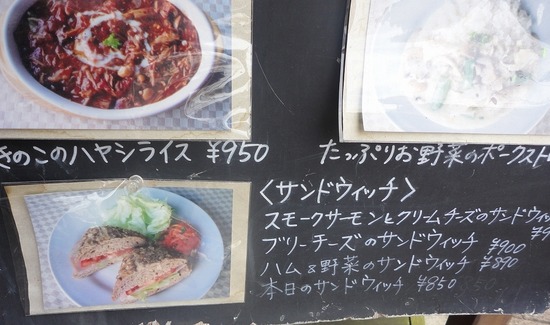 きのこのハヤシライス ¥950
たっぷりお野菜のポークスト
〈サンドウィッチ〉
スモークサーモンとクリームチーズのサンドウィ
ブリーチーズのサンドウィッチ ¥900
ハム&野菜のサンドウィッチ ¥890
本日のサンドウィッチ ¥850